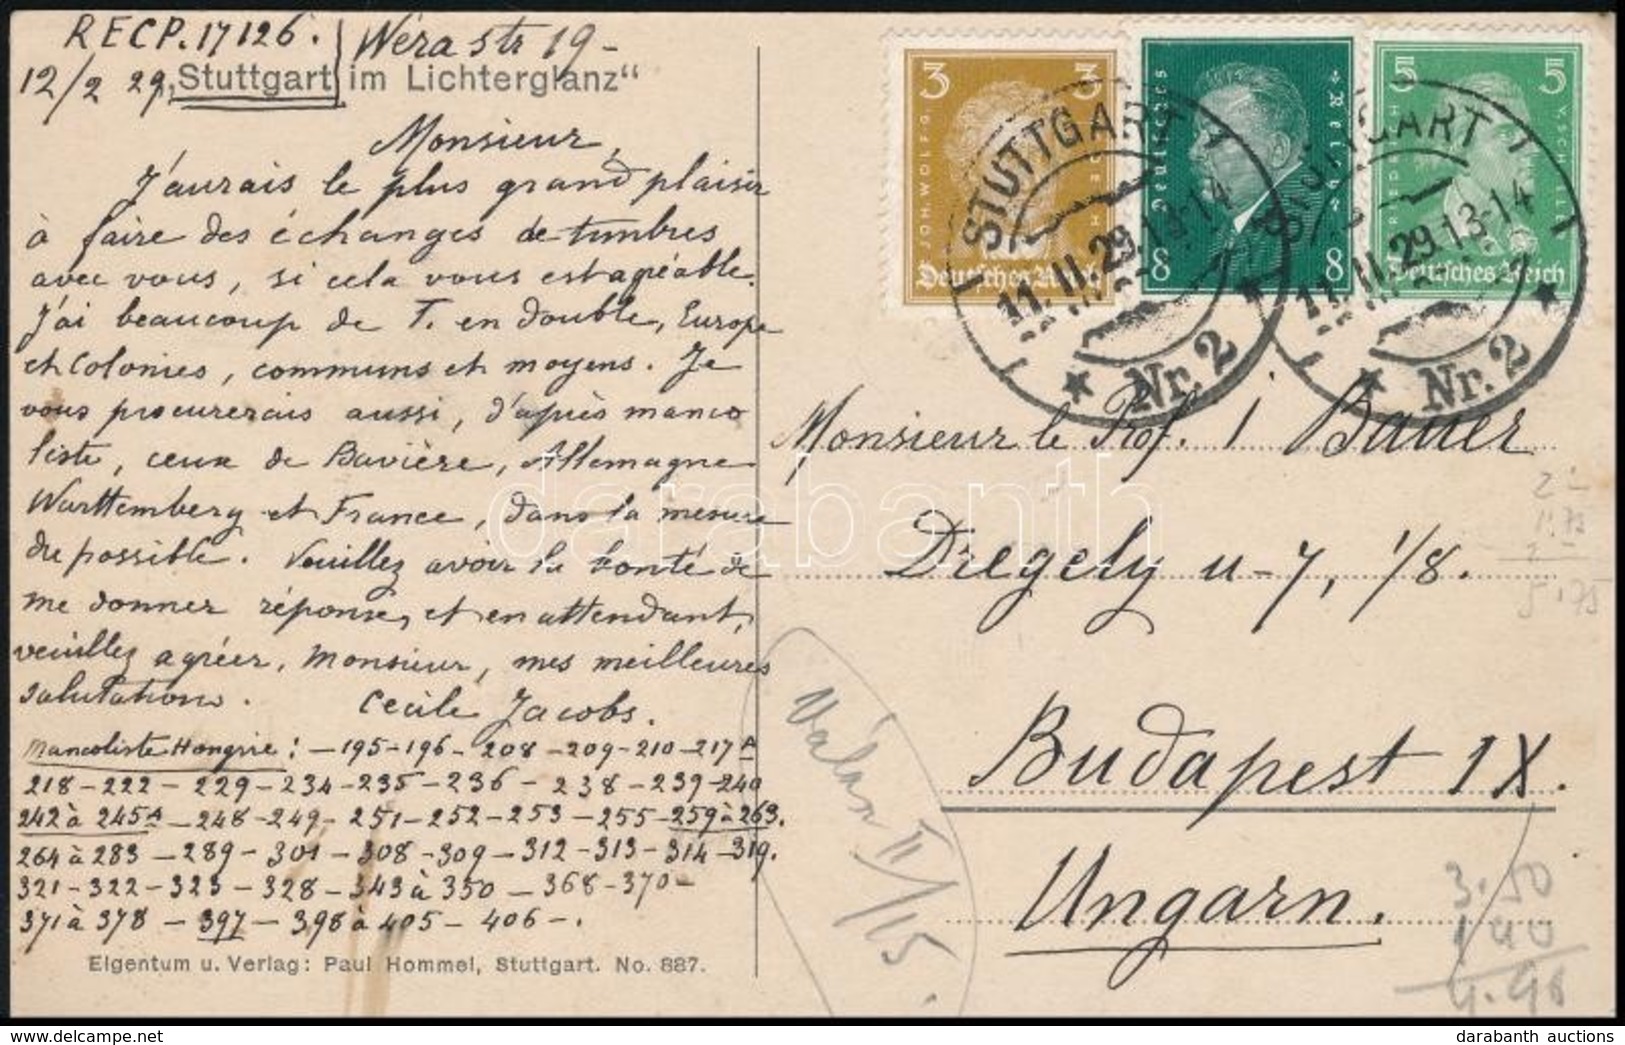 RECP. 17126. Wera str 19-
12/2 29. „Stuttgart im Lichterglanz“
Monsieur,
J'aurais le plus grand plaisir
à faire des échanges de timbres
avec vous, si cela vous est agréable.
J'ai beaucoup de T. en double, Europe
et Colonies, communs et moyens. Je
vous procurerais aussi, d'après manco
liste, ceux de Bavière, Allemagne
Wurttemberg et France, dans la mesure
du possible. Veuillez avoir la bonté de
me donner réponse, et en attendant,
veuillez agréer, Monsieur, mes meilleures
salutations. Cecile Jacobs.
Mancoliste Hongrie: -195-196-208-209-210-217A
218-222-229-234-235-236-238-239-240
242 à 245A-248-249-251-252-253-255-259 à 263.
264 à 283-289-301-308-309-312-313-314-319.
321-322-323-328-343 à 350-368-370-
371 à 378-397-398 à 405-406-.
Eigentum u. Verlag: Paul Hommel, Stuttgart. No. 887.
3 3
JOH. WOLFG.
Deutsches Reich
Deutsches Reich
8 8
5 5
FRIEDRICH V. SCHILLER
Deutsches Reich
STUTTGART
11.II.29.13-14
Nr. 2
STUTTGART
11.II.29.13-14
Nr. 2
Monsieur le Prof. I Bauer
Dregely u-7, 1/8.
Budapest IX.
Ungarn.
Válasz II/15.
2.-
1.75
2
5.75
3.50
darabanth
darabanth auctions